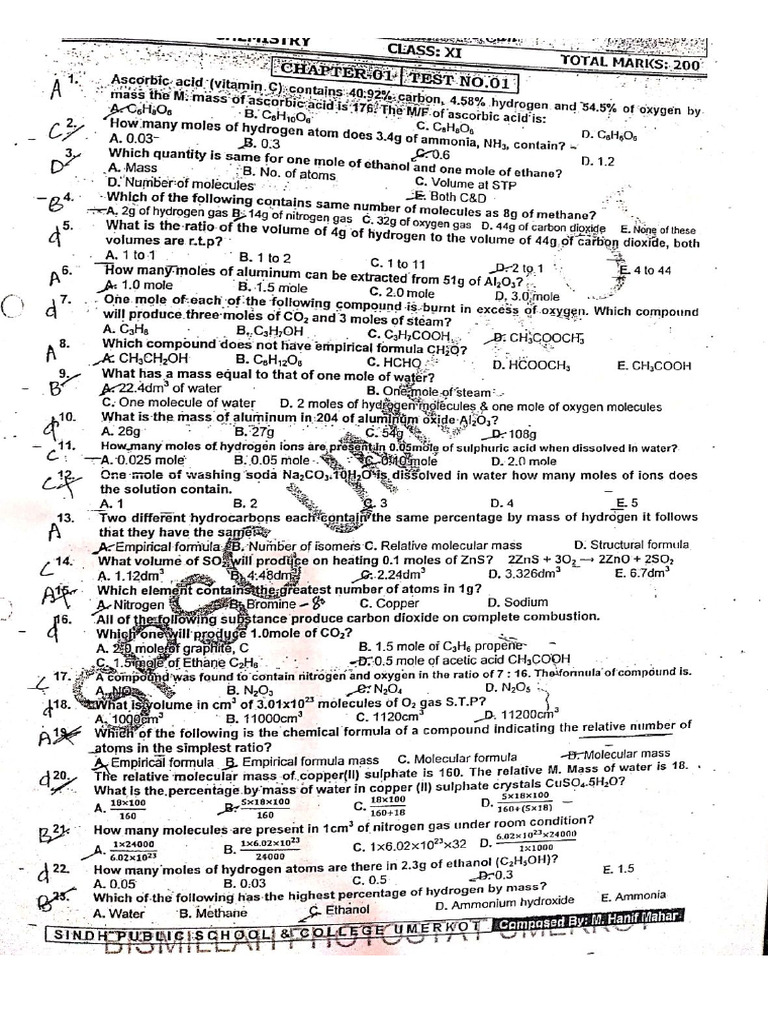 CHEMISTRY
CLASS: XI
TOTAL MARKS: 200
CHAPTER-01 TEST NO.01
A 1. Ascorbic acid (vitamin C) contains 40.92% carbon, 4.58% hydrogen and 54.5% of oxygen by
mass the M. mass of ascorbic acid is 176. The M/F of ascorbic acid is:
A. C₆H₈O₆ B. C₆H₁₀O₆ C. C₈H₈O₆ D. C₆H₆O₆
C 2. How many moles of hydrogen atom does 3.4g of ammonia, NH₃, contain?
A. 0.03 B. 0.3 C. 0.6 D. 1.2
D 3. Which quantity is same for one mole of ethanol and one mole of ethane?
A. Mass B. No. of atoms C. Volume at STP
D. Number of molecules E. Both C&D
B 4. Which of the following contains same number of molecules as 8g of methane?
A. 2g of hydrogen gas B. 14g of nitrogen gas C. 32g of oxygen gas D. 44g of carbon dioxide E. None of these
d 5. What is the ratio of the volume of 4g of hydrogen to the volume of 44g of carbon dioxide, both
volumes are r.t.p?
A. 1 to 1 B. 1 to 2 C. 1 to 11 D. 2 to 1 E. 4 to 44
A 6. How many moles of aluminum can be extracted from 51g of Al₂O₃?
A. 1.0 mole B. 1.5 mole C. 2.0 mole D. 3.0 mole
d 7. One mole of each of the following compound is burnt in excess of oxygen. Which compound
will produce three moles of CO₂ and 3 moles of steam?
A. C₃H₈ B. C₃H₇OH C. C₃H₇COOH D. CH₃COOCH₃
A 8. Which compound does not have empirical formula CH₂O?
A. CH₃CH₂OH B. C₆H₁₂O₆ C. HCHO D. HCOOCH₃ E. CH₃COOH
B 9. What has a mass equal to that of one mole of water?
A. 22.4dm³ of water B. One mole of steam
C. One molecule of water D. 2 moles of hydrogen molecules & one mole of oxygen molecules
d 10. What is the mass of aluminum in 204 of aluminum oxide Al₂O₃?
A. 26g B. 27g C. 54g D. 108g
C 11. How many moles of hydrogen ions are present in 0.05mole of sulphuric acid when dissolved in water?
A. 0.025 mole B. 0.05 mole C. 0.10 mole D. 2.0 mole
C 12. One mole of washing soda Na₂CO₃.10H₂O is dissolved in water how many moles of ions does
the solution contain.
A. 1 B. 2 C. 3 D. 4 E. 5
A 13. Two different hydrocarbons each contain the same percentage by mass of hydrogen it follows
that they have the same
A. Empirical formula B. Number of isomers C. Relative molecular mass D. Structural formula
C 14. What volume of SO₂ will produce on heating 0.1 moles of ZnS? 2ZnS + 3O₂ → 2ZnO + 2SO₂
A. 1.12dm³ B. 4.48dm³ C. 2.24dm³ D. 3.326dm³ E. 6.7dm³
A 15. Which element contains the greatest number of atoms in 1g?
A. Nitrogen B. Bromine C. Copper D. Sodium
d 16. All of the following substance produce carbon dioxide on complete combustion.
Which one will produce 1.0mole of CO₂?
A. 2.0 mole of graphite, C B. 1.5 mole of C₃H₆ propene
C. 1.5 mole of Ethane C₂H₆ D. 0.5 mole of acetic acid CH₃COOH
C 17. A compound was found to contain nitrogen and oxygen in the ratio of 7 : 16. The formula of compound is.
A. NO B. N₂O₃ C. N₂O₄ D. N₂O₅
d 18. What is volume in cm³ of 3.01x10²³ molecules of O₂ gas S.T.P?
A. 1000cm³ B. 11000cm³ C. 1120cm³ D. 11200cm³
A 19. Which of the following is the chemical formula of a compound indicating the relative number of
atoms in the simplest ratio?
A. Empirical formula B. Empirical formula mass C. Molecular formula D. Molecular mass
d 20. The relative molecular mass of copper(II) sulphate is 160. The relative M. Mass of water is 18.
What is the percentage by mass of water in copper (II) sulphate crystals CuSO₄.5H₂O?
A. 18×100/160 B. 5×18×100/160 C. 18×100/160+18 D. 5×18×100/160+(5×18)
B 21. How many molecules are present in 1cm³ of nitrogen gas under room condition?
A. 1×24000/6.02×10²³ B. 1×6.02×10²³/24000 C. 1×6.02×10²³×32 D. 6.02×10²³×24000/1×1000
d 22. How many moles of hydrogen atoms are there in 2.3g of ethanol (C₂H₅OH)?
A. 0.05 B. 0.03 C. 0.5 D. 0.3 E. 1.5
B 23. Which of the following has the highest percentage of hydrogen by mass?
A. Water B. Methane C. Ethanol D. Ammonium hydroxide E. Ammonia
SINDH PUBLIC SCHOOL & COLLEGE UMERKOT Composed By: M. Hanif Mahar
BISMILLAH PHOTOSTAT UMERKOT